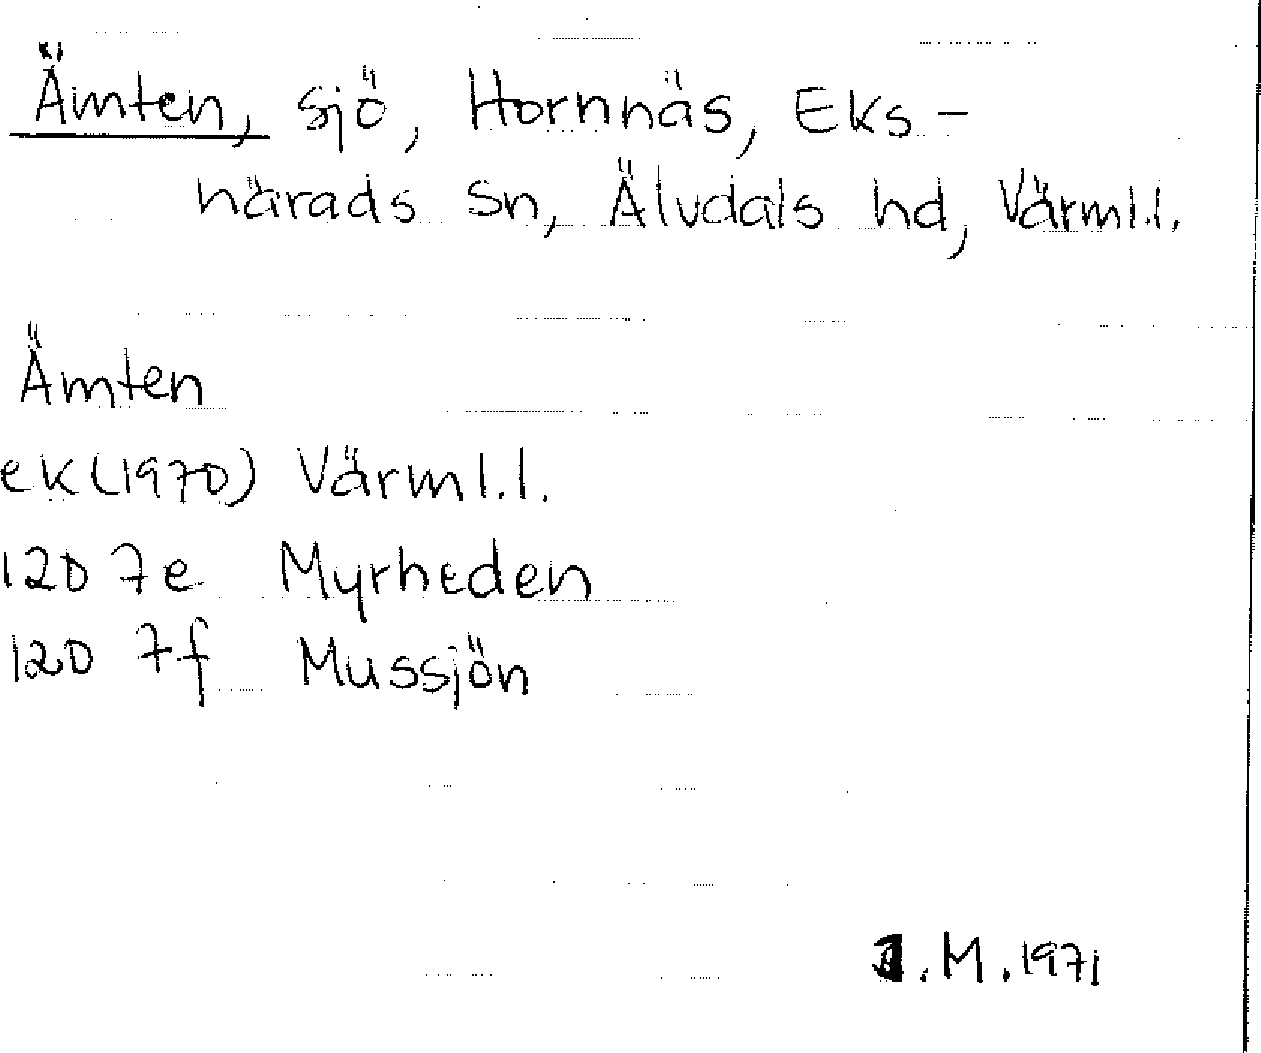 Ämten, sjö, Hornnäs, Eks-
härads sn, Älvdals hd, Värml.l.
Ämten
ek (1970) Värml.l.
12D 7e Myrheden
12D 7f Mussjön
.M.1971